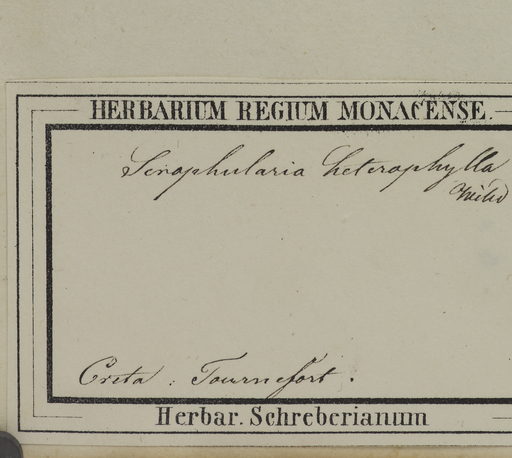 HERBARIUM REGIUM MONACENSE.
Scrophularia heterophylla
Willd
Creta : Tournefort .
Herbar. Schreberianum